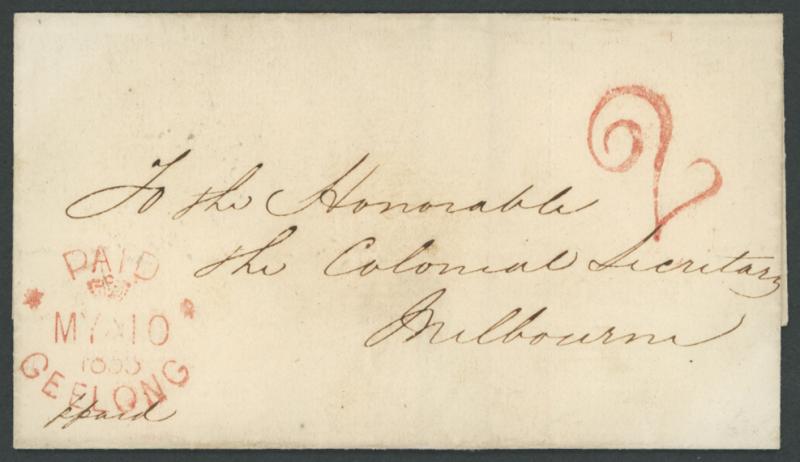 2
To the Honorable
the Colonial Secretary
Melbourne
PAID
MY 10
1853
GEELONG
ppaid